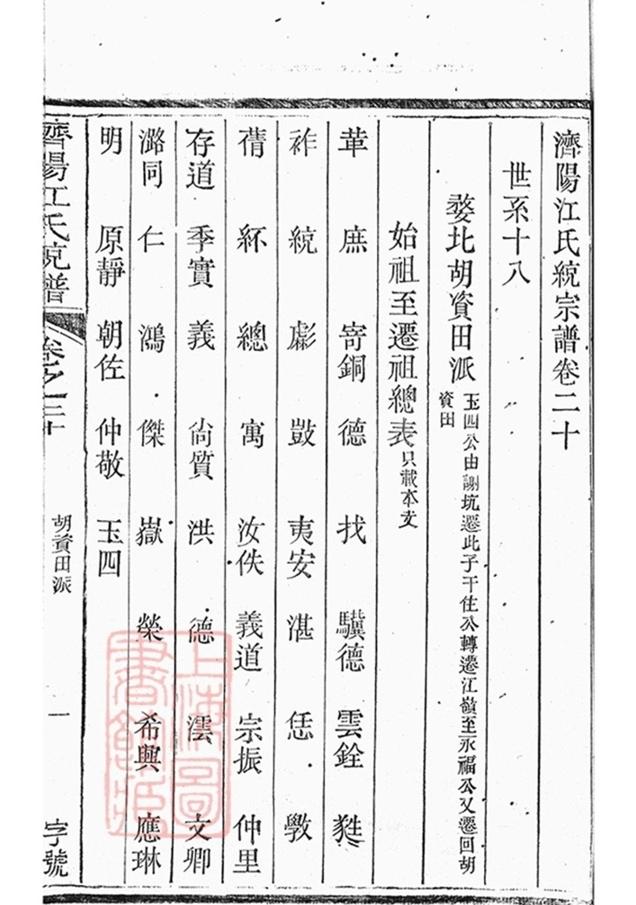 濟陽江氏統宗譜卷二十
世系十八
婺北胡資田派 玉四公由謝坑遷此子千住公轉遷江嶺至永福公又遷回胡
資田
始祖至遷祖總表 只載本支
革 庶 寄銅 德 找 驥德 雲銓
祚 統 彪 鼓 夷安 湛 恁 斅
蒨 紑 總 寓 汝佚 義道 宗振 仲里
存道 季實 義 尚質 洪 德 澐 文卿
潞同 仁 鴻 傑 嶽 榮 希興 應琳
明 原靜 朝佐 仲敬 玉四
濟陽江氏統譜 卷之二十 胡資田派 一 字號
上海圖書館藏